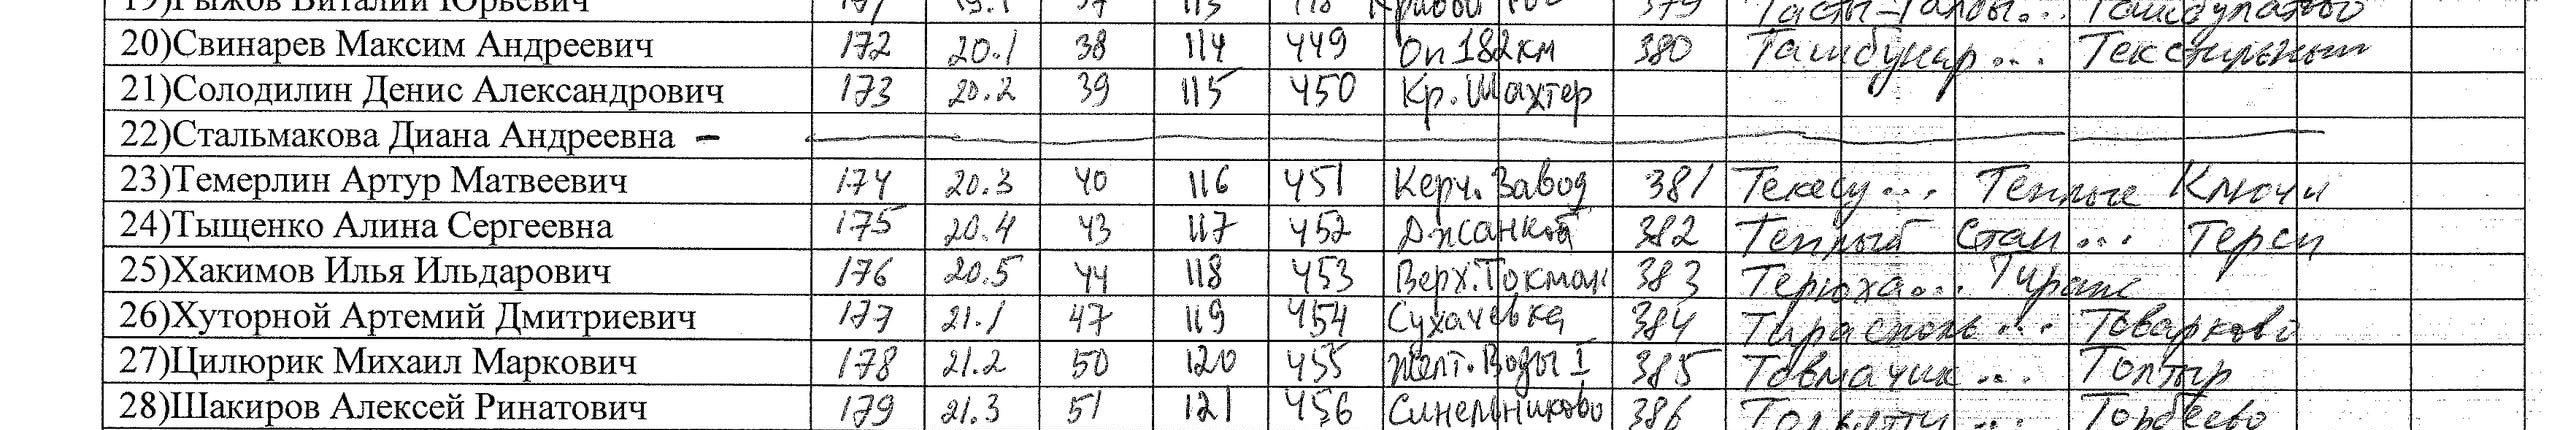 19)Рыжов Виталий Юрьевич 171 19.1 37 113 379 Тасты-Талды...
20)Свинарев Максим Андреевич 172 20.1 38 114 449 Оп 182км 380 Ташбунар... Текстильный
21)Солодилин Денис Александрович 173 20.2 39 115 450 Кр. Шахтер
22)Стальмакова Диана Андреевна –
23)Темерлин Артур Матвеевич 174 20.3 40 116 451 Керч. Завод 381 Текесу... Теплые Ключи
24)Тыщенко Алина Сергеевна 175 20.4 43 117 452 Джанкой 382 Теплый Стан... Терси
25)Хакимов Илья Ильдарович 176 20.5 44 118 453 Верх.Токмак 383 Терюха... Тирапс
26)Хуторной Артемий Дмитриевич 177 21.1 47 119 454 Сухачевка 384 Тирасполь... Товарково
27)Цилюрик Михаил Маркович 178 21.2 50 120 455 Желт.Воды I 385 Товмачик... Топтыр
28)Шакиров Алексей Ринатович 179 21.3 51 121 456 Синельниково 386 Тольятти... Торбеево